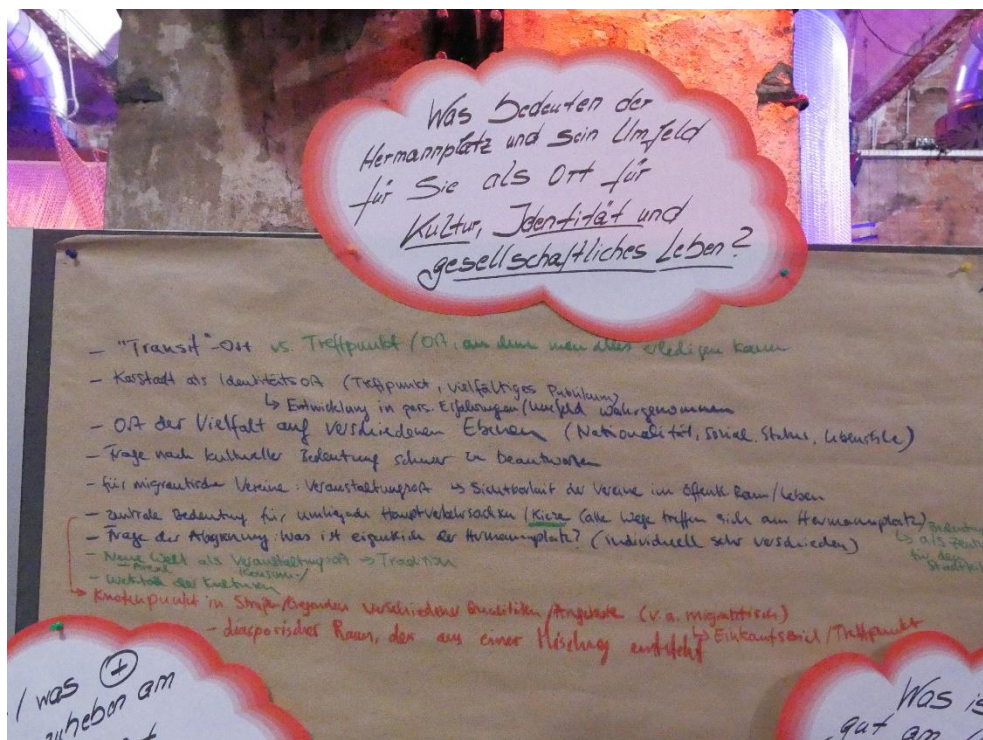 Was bedeuten der
Hermannplatz und sein Umfeld
für Sie als Ort für
Kultur, Identität und
gesellschaftliches Leben?
- "Transit"-Ort vs. Treffpunkt / Ort, an dem man alles erledigen kann
- Karstadt als Identitätsort (Treffpunkt, vielfältiges Publikum)
↳ Entwicklung in pers. Erfahrungen/Umfeld wahrgenommen
- Ort der Vielfalt auf verschiedenen Ebenen (Nationalität, sozial. Status, Lebensstile)
- Frage nach kultureller Bedeutung schwer zu beantworten
- für migrantische Vereine: Veranstaltungsort → Sichtbarkeit der Vereine im öffentl. Raum/Leben
- zentrale Bedeutung für umliegende Hauptverkehrsachsen / Kieze (alle Wege treffen sich am Hermannplatz)
- Frage der Abgrenzung: Was ist eigentlich der Hermannplatz? (individuell sehr verschieden)
↳ als
für den
- Neue Welt als Veranstaltungsort → Tradition
Areal
Konsum/
- Werkstatt der Kulturen
Knotenpunkt in Straßen/Gegenden verschiedener Qualitäten/Angebote (v.a. migrantisch)
↳ Einkaufsziel/Treffpunkt
- diasporischer Raum, der aus einer Mischung entsteht
/ was +
am
Was is
gut am